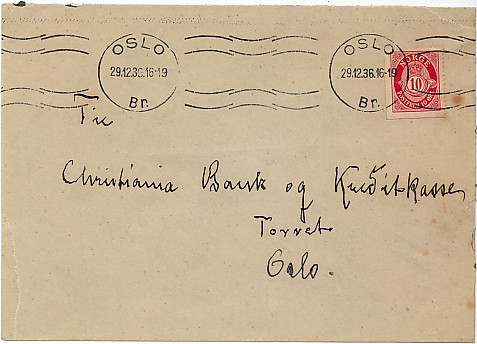 OSLO
29.12.36.16-19
Br.
OSLO
29.12.36.16-19
Br.
NORGE
10
Til
Christiania Bank og Kreditkasse,
Torvet
Oslo.